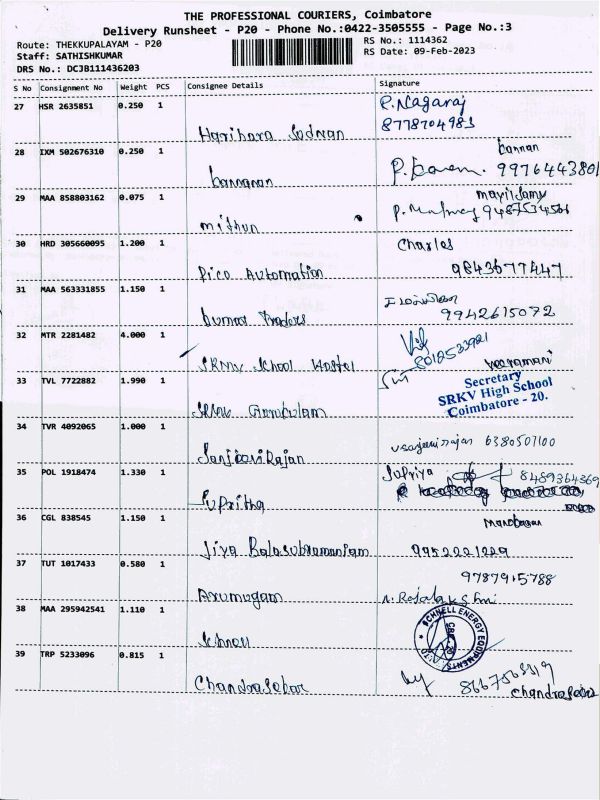 THE PROFESSIONAL COURIERS, Coimbatore
Delivery Runsheet - P20 - Phone No.:0422-3505555 - Page No.:3
Route: THEKKUPALAYAM - P20
RS No.: 1114362
Staff: SATHISHKUMAR
RS Date: 09-Feb-2023
DRS No.: DCJB111436203
S No Consignment No Weight PCS Consignee Details Signature
27 HSR 2635851 0.250 1
R. Nagaraj
8778704983
Harihara
28 IXM 502676310 0.250 1
kannan
9976443801
kannanan
29 MAA 858803162 0.075 1
mithun
30 HRD 305660095 1.200 1
Charles
9843677447
Pico Automation
31 MAA 563331855 1.150 1
9942615072
Kumar Traders
32 MTR 2281482 4.000 1
SRKV School Hostel
veeramani
33 TVL 7722882 1.990 1
Secretary
SRKV High School
Coimbatore - 20.
34 TVR 4092065 1.000 1
6380507100
Sanjeevi Rajan
35 POL 1918474 1.330 1
Supriya 8489364369
Supritha
36 CGL 838545 1.150 1
Manobaran
Jiya Balasubramaniam
37 TUT 1017433 0.580 1
Arumugam
38 MAA 295942541 1.110 1
SCHNELL ENERGY EQUIPMENTS
CBE-20
Schnell
39 TRP 5233096 0.815 1
Chandrasekar